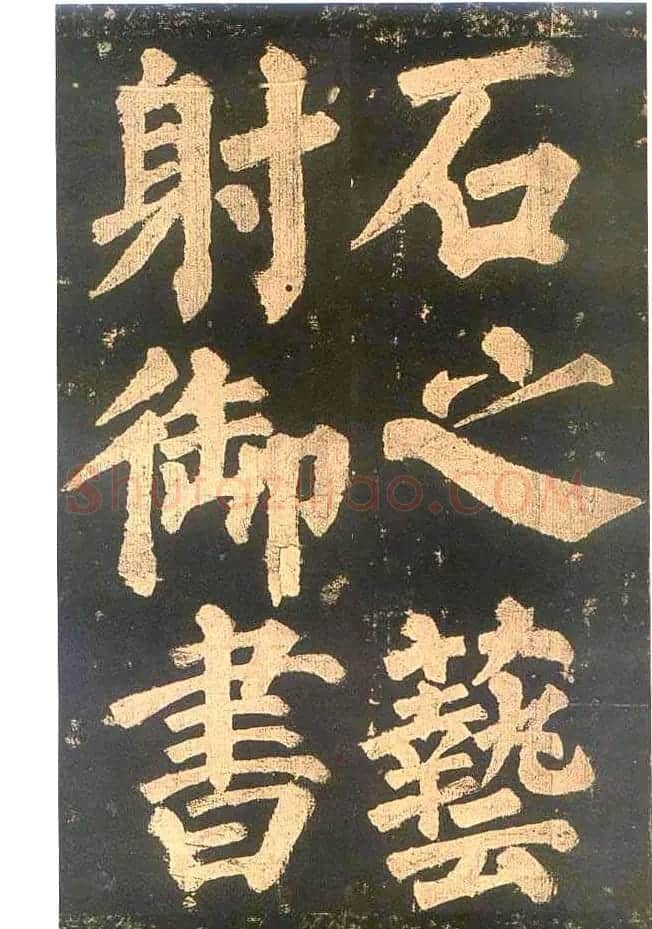 石之藝
射御書
Shufazidao.COM